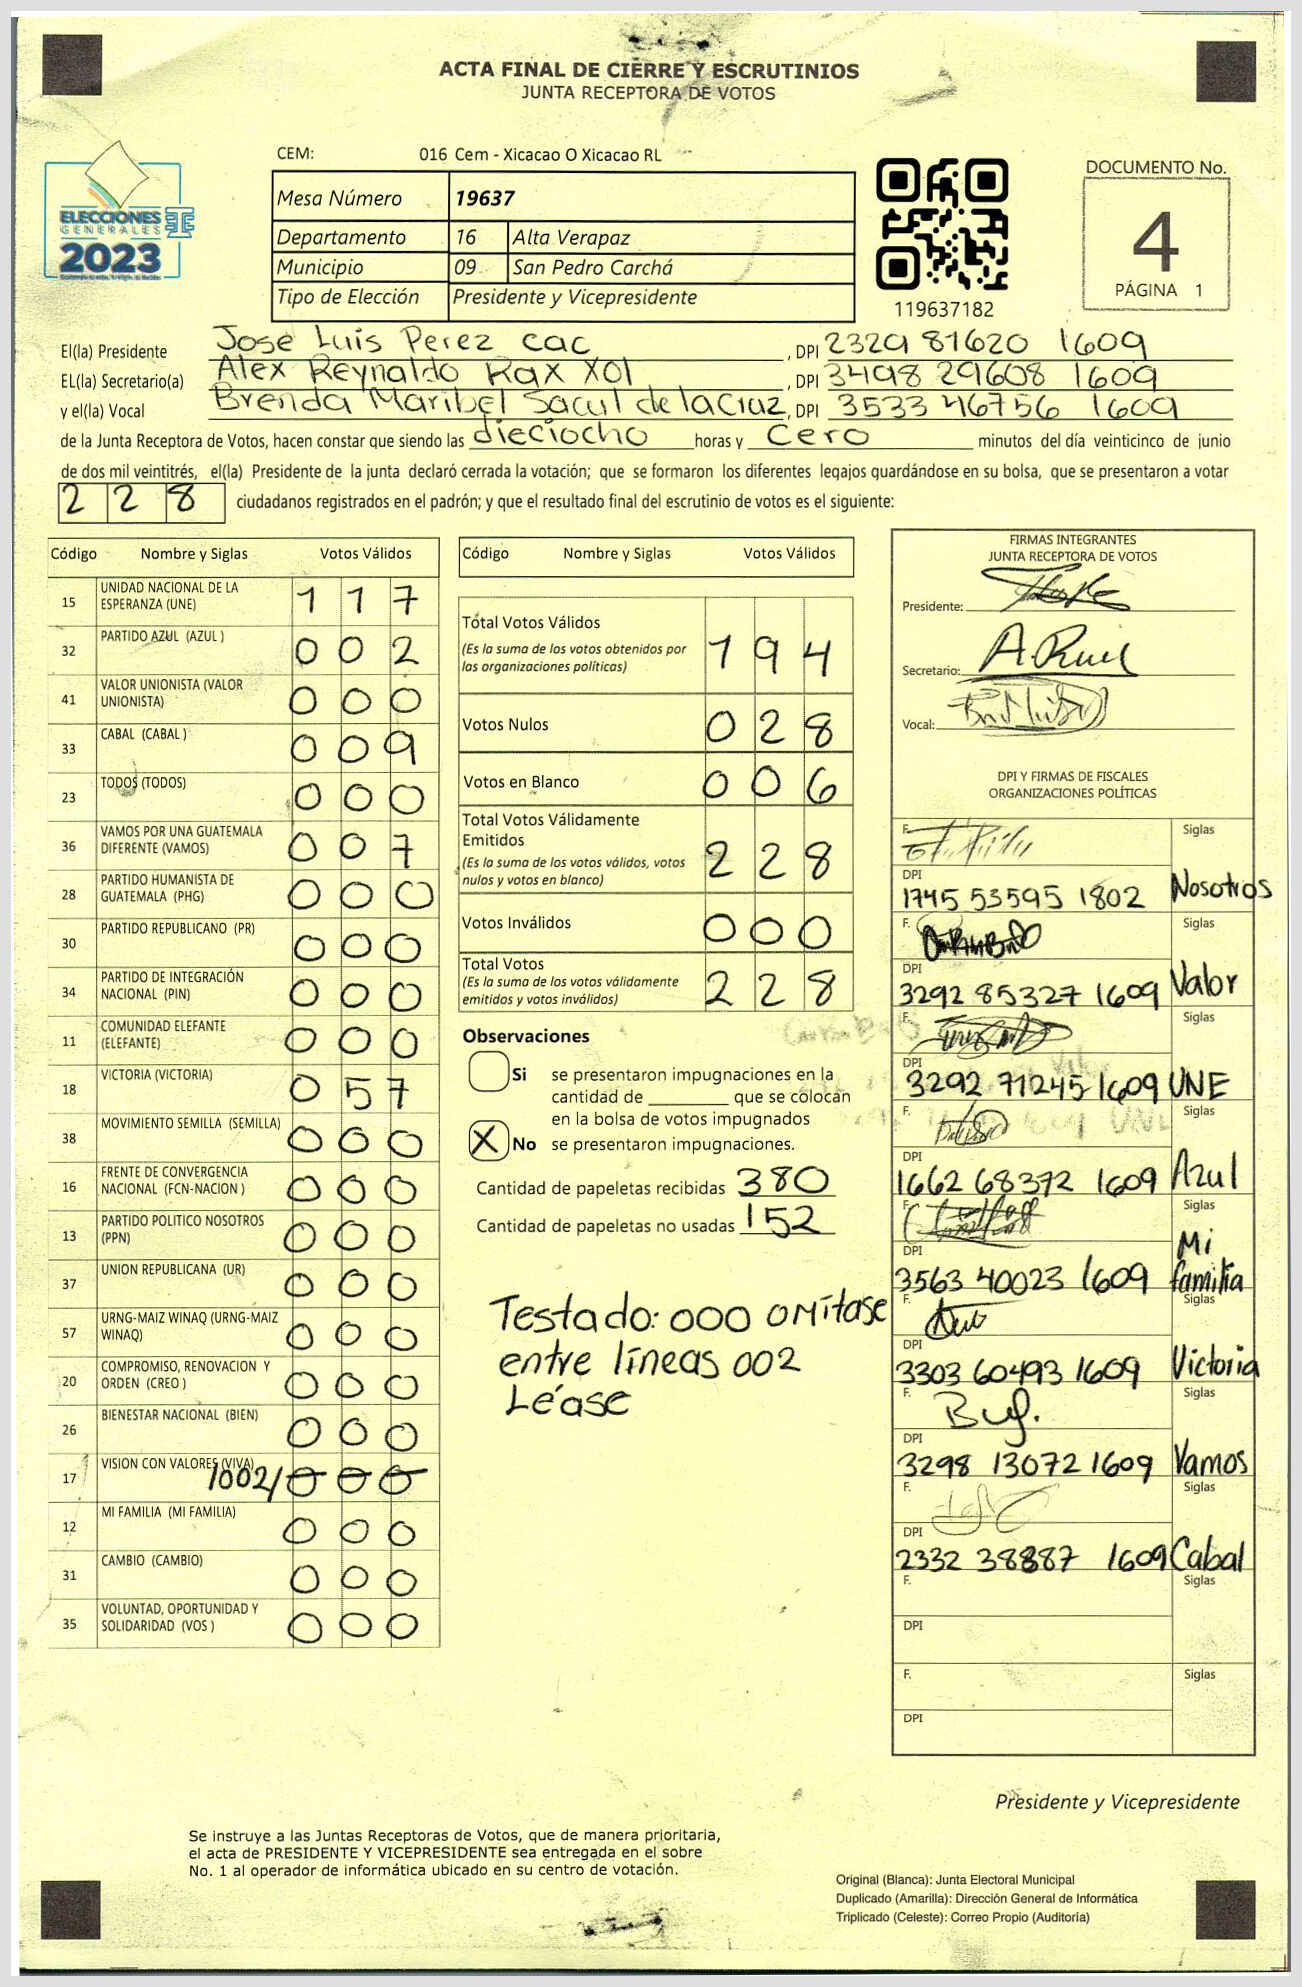 ACTA FINAL DE CIERRE Y ESCRUTINIOS
JUNTA RECEPTORA DE VOTOS
CEM: 016 Cem - Xicacao O Xicacao RL
ELECCIONES
GENERALES
2023
Mesa Número 19637
Departamento 16 Alta Verapaz
Municipio 09 San Pedro Carchá
Tipo de Elección Presidente y Vicepresidente
119637182
DOCUMENTO No.
4
PÁGINA 1
El(la) Presidente Jose Luis Perez cac, DPI 2329 81620 1609
EL(la) Secretario(a) Alex Reynaldo Rax Xol, DPI 3498 29608 1609
y el(la) Vocal Brenda Maribel Sacul de la Cruz, DPI 3533 46756 1609
de la Junta Receptora de Votos, hacen constar que siendo las dieciocho horas y cero minutos del día veinticinco de junio
de dos mil veintitrés, el(la) Presidente de la junta declaró cerrada la votación; que se formaron los diferentes legajos guardándose en su bolsa, que se presentaron a votar
228 ciudadanos registrados en el padrón; y que el resultado final del escrutinio de votos es el siguiente:
Código Nombre y Siglas Votos Válidos
15 UNIDAD NACIONAL DE LA ESPERANZA (UNE) 117
32 PARTIDO AZUL (AZUL ) 002
41 VALOR UNIONISTA (VALOR UNIONISTA) 000
33 CABAL (CABAL ) 009
23 TODOS (TODOS) 000
36 VAMOS POR UNA GUATEMALA DIFERENTE (VAMOS) 007
28 PARTIDO HUMANISTA DE GUATEMALA (PHG) 000
30 PARTIDO REPUBLICANO (PR) 000
34 PARTIDO DE INTEGRACIÓN NACIONAL (PIN) 000
11 COMUNIDAD ELEFANTE (ELEFANTE) 000
18 VICTORIA (VICTORIA) 057
38 MOVIMIENTO SEMILLA (SEMILLA) 000
16 FRENTE DE CONVERGENCIA NACIONAL (FCN-NACION ) 000
13 PARTIDO POLITICO NOSOTROS (PPN) 000
37 UNION REPUBLICANA (UR) 000
57 URNG-MAIZ WINAQ (URNG-MAIZ WINAQ) 000
20 COMPROMISO, RENOVACION Y ORDEN (CREO ) 000
26 BIENESTAR NACIONAL (BIEN) 000
17 VISION CON VALORES (VIVA) /002/ 000
12 MI FAMILIA (MI FAMILIA) 000
31 CAMBIO (CAMBIO) 000
35 VOLUNTAD, OPORTUNIDAD Y SOLIDARIDAD (VOS ) 000
Código Nombre y Siglas Votos Válidos
Total Votos Válidos 194
(Es la suma de los votos obtenidos por
las organizaciones políticas)
Votos Nulos 028
Votos en Blanco 006
Total Votos Válidamente
Emitidos 228
(Es la suma de los votos válidos, votos
nulos y votos en blanco)
Votos Inválidos 000
Total Votos 228
(Es la suma de los votos válidamente
emitidos y votos inválidos)
Observaciones
Si se presentaron impugnaciones en la
cantidad de ________ que se colocan
en la bolsa de votos impugnados
X No se presentaron impugnaciones.
Cantidad de papeletas recibidas 380
Cantidad de papeletas no usadas 152
Testado: 000 omítase
entre líneas 002
Léase
FIRMAS INTEGRANTES
JUNTA RECEPTORA DE VOTOS
Presidente:
Secretario:
Vocal:
DPI Y FIRMAS DE FISCALES
ORGANIZACIONES POLÍTICAS
F. Siglas
DPI
1745 53595 1802 Nosotros
F. Siglas
DPI
3292 85327 1609 Valor
F. Siglas
DPI
3292 71245 1609 UNE
F. Siglas
DPI
1662 68372 1609 Azul
F. Siglas
DPI
3563 40023 1609 Mi familia
F. Siglas
DPI
3303 60493 1609 Victoria
F. Siglas
DPI
3298 13072 1609 Vamos
F. Siglas
DPI
2332 38887 1609 Cabal
F. Siglas
DPI
F. Siglas
DPI
Presidente y Vicepresidente
Se instruye a las Juntas Receptoras de Votos, que de manera prioritaria,
el acta de PRESIDENTE Y VICEPRESIDENTE sea entregada en el sobre
No. 1 al operador de informática ubicado en su centro de votación.
Original (Blanca): Junta Electoral Municipal
Duplicado (Amarilla): Dirección General de Informática
Triplicado (Celeste): Correo Propio (Auditoría)